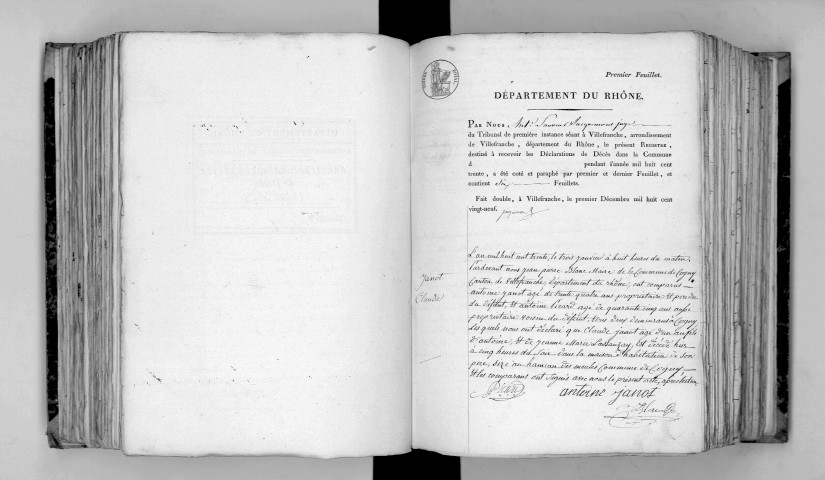 Premier Feuillet.
DÉPARTEMENT DU RHÔNE.
PAR NOUS, juge
du Tribunal de première instance séant à Villefranche, arrondissement
de Villefranche, département du Rhône, le présent REGISTRE,
destiné à recevoir les Déclarations de Décès dans la Commune
d pendant l'année mil huit cent
trente, a été coté et paraphé par premier et dernier Feuillet, et
contient Feuillets.
Fait double, à Villefranche, le premier Décembre mil huit cent
vingt-neuf.
Janot
Claude
L'an mil huit cent trente, le trois janvier à huit heures du matin,
Pardevant nous jean pierre Blanc Maire de la Commune de Cogny
Canton de Villefranche, département du rhône, est comparus
antoine janot agé de trente quatre ans proprietaire et pere
du défunt, et antoine agé de quarante cinq ans
proprietaire voisin du défunt, tous deux demeurans à Cogny
lesquels nous ont déclaré que Claude janot agé d'un an fils
d'antoine, et de jeanne Marie est décédé hier
à cinq heures du soir dans la maison d'habitation de son
pere, sise au hameau des Commune de Cogny
et les comparans ont signés avec nous le présent acte, après lecture
antoine janot